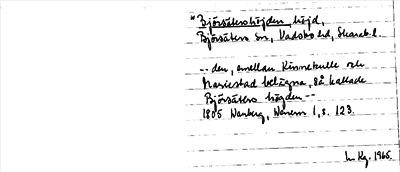 *Björsätershöjden, höjd,
Björsäters sn, Vadsbo hd, Skarab. l.
-- den, emellan Kinnekulle och
Mariestad belägna, så kallade
Björsäters höjden --
1805 Warberg, Wenern 1, s. 123.
Kg. 1965.